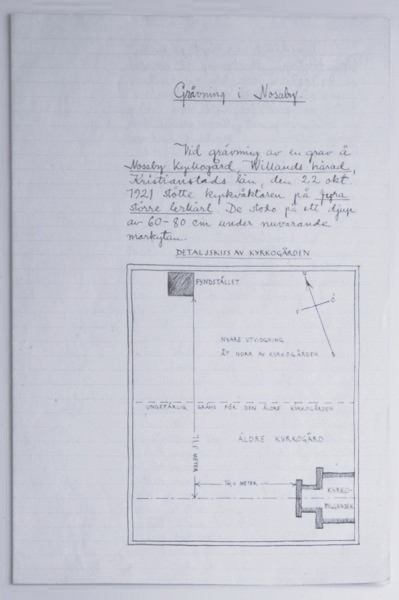 Grävning i Nosaby.
Vid grävning av en grav å
Nosaby Kyrkogård, Willands härad,
Kristianstads län, den 22 okt.
1921 stötte kyrkväktaren på fyra
större lerkärl. De stodo på ett djup
av 60–80 cm under nuvarande
markytan.
DETALJSKISS AV KYRKOGÅRDEN
FYNDSTÄLLET
Ö
NYARE UTVIDGNING
ÅT NORR AV KYRKOGÅRDEN
UNGEFÄRLIG GRÄNS FÖR DEN ÄLDRE KYRKOGÅRDEN
ÄLDRE KYRKOGÅRD
METER
METER
KYRKO-
BYGGNADEN